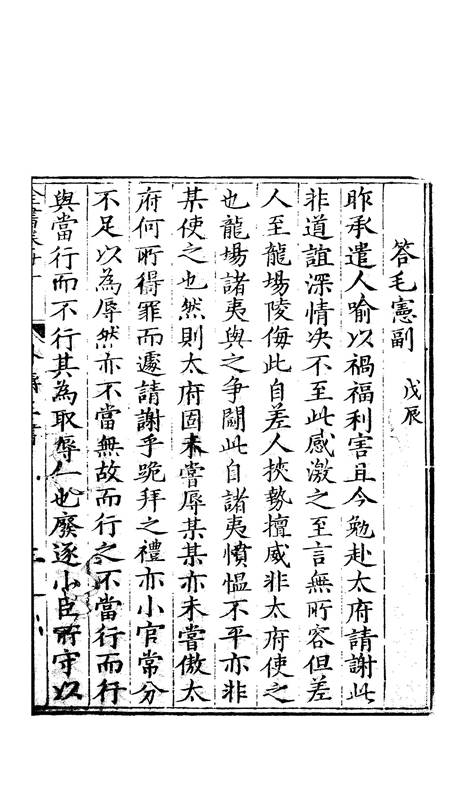 答毛憲副　戊辰
昨承遣人喻以禍福利害且令勉赴太府請謝此
非道誼深情决不至此感激之至言無所容但差
人至龍場陵侮此自差人挾勢擅威非太府使之
也龍場諸夷與之争鬬此自諸夷憤愠不平亦非
某使之也然則太府固未嘗辱某某亦未嘗傲太
府何所得罪而遽請謝乎跪拜之禮亦小官常分
不足以為辱然亦不當無故而行之不當行而行
與當行而不行其為取辱一也廢逐小臣所守以